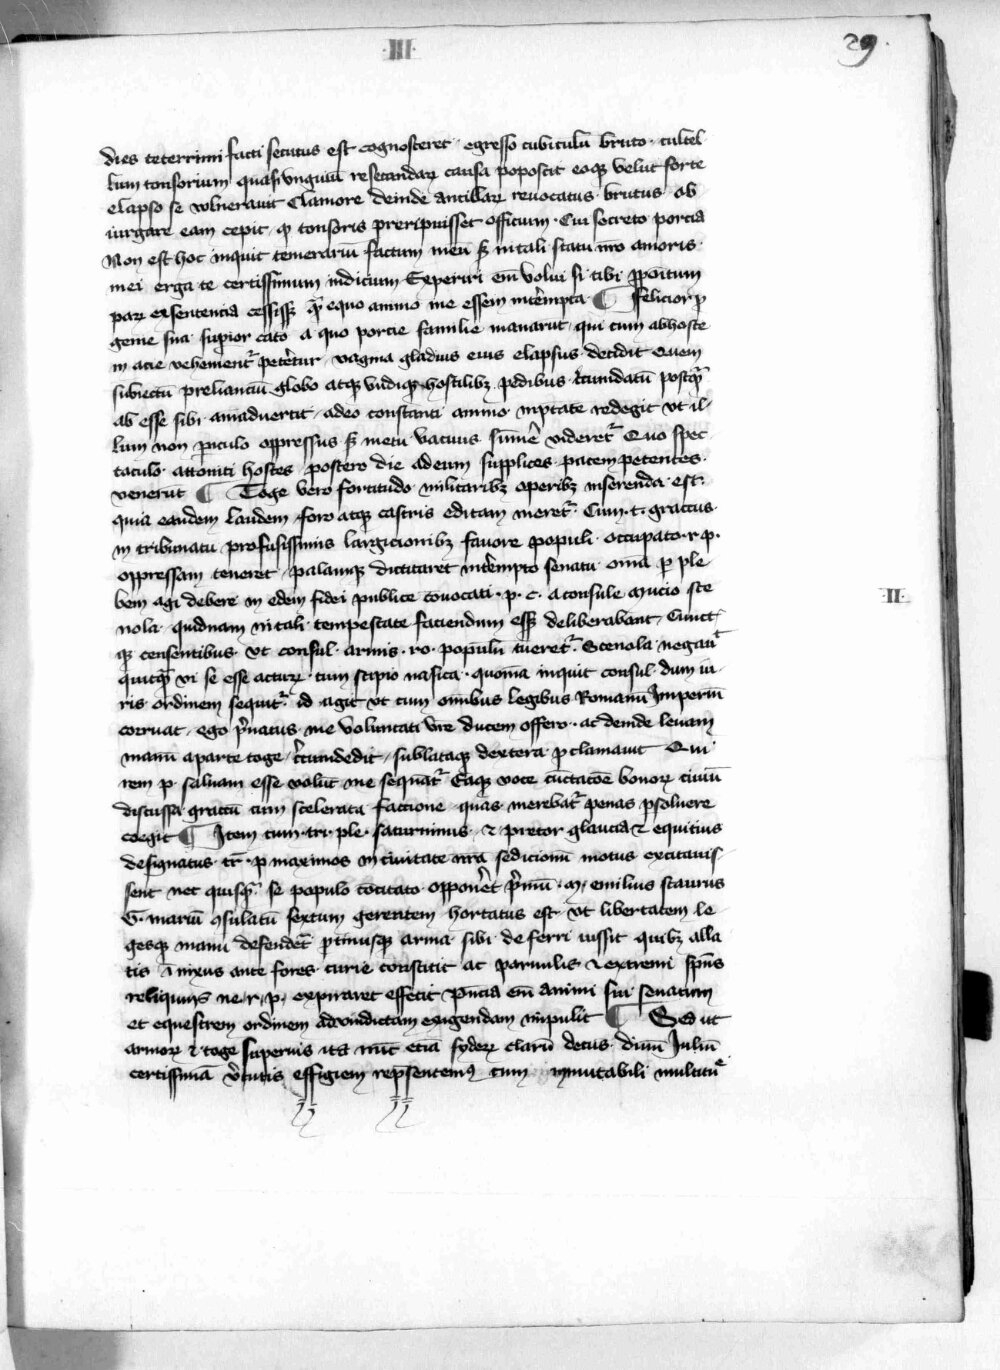 ·III·
29.
dies teterrimi facti secutus est cognosceret · egresso cubiculū bruto · cultel
lum tonsorium quasi vnguiū resecandaꝝ causa poposcit eoqꝫ velut forte
elapso se vulnerauit Clamore deinde ancillaꝝ reuocatus · brutus · ob
iurgare eam cepit · ꝙ tonsoris preripuisset officium · Cui secreto porcia
Non est hoc inquit temerariū factum meū sꝫ in tali statu nro amoris ·
mei erga te certissimum indicium Experiri em̄ volui si tibi ꝓpoitum
paꝝ ex sentencia cessissꝫ qͣ equo animo me essem intēmpta ¶ felicior ꝓ
genie sua supior cato a quo porcie familie manarūt · qui cum ab hoste
in acie vehementr̄ petētur · vagina gladius eius elapsus · decidit Quem
subiectū preliantiū globo atqꝫ vndiqꝫ hostilibꝫ pedibus · c̄cumdatū postqͣ
ab esse sibi · aniaduertit · adeo constanti animo in ptate redegit vt il-
lum non piculo oppressus sꝫ metu vacuus sūmē videretr̄ Quo spec-
taculo · attoniti hostes postero die ad eum supplices · pacem petentes ·
venerūt ¶ Toge vero fortitudo militaribꝫ operibꝫ inserenda est ·
quia eandem laudem · foro atqꝫ castris editam meretr̄ · Cum · t · graccus ·
in tribunatu profusissimis largicionibꝫ fauore populi · occupato · r · p ·
oppressam teneret · palamqꝫ dictitaret intēmpto senatu · omīa ꝑ ple
bem agi debere in edem fidei publice cōuocati · p · c · a consule mucio sce
nola quidnam in tali · tempestate faciendum essꝫ deliberabant · Cunct-
qꝫ censentibus · vt consul · armis · ro · populū tueretr̄ · Scenola negauͭ
quicqͣ vi se esse acturꝝ · tum scipio nasica · quoniā inquit consul · dum iu-
ris · ordinem sequitr̄ · id agit vt cum omībus legibus Romanū Imperiū
corruat · ego pͥuatus · me voluntati vr̄e ducem offero · ac deinde leuam
manū a parte toge · c̄cumdedit · sublataqꝫ dextera ꝓclamauit Qui
rem p · saluam esse volūt me sequatr̄ Eaqꝫ voce cūctacōe bonoꝝ ciuiū
discussa graccū cum scelerata factione quas merebatr̄ penas ꝑsoluere
coegit ¶ Item cum · tri · ple · saturninus · & pretor glaucia & equitius
designatus · tr̄ · p maximos in ciuitate nra sedicionū motus excitauis-
sent nec quisqͣ se populo cōcitato opponēt pͥmū · M · emilius scaurus
G · mariū ꝯsulatū sextum gerentem hortatus est vt libertatem le-
gesqꝫ manu defendēt ꝓtinusqꝫ arma sibi · deferri iussit quibꝫ alla
tis ā nixus ante fores · curie constitit ac paruulis & extremi spūs
reliquiis ne · r · p · expiraret effecit pn̄cia em̄ animi sui senatum
et equestrem ordinem ad vindictam exigendam impulit ¶ Sed ut
armoꝝ & toge superius ita nūc eciā sydeꝝ clarū decus · diuū Juliū
certissimā v̄tutis effigiem repsentemꝰ cum inmutabili multituᵉ
·II·